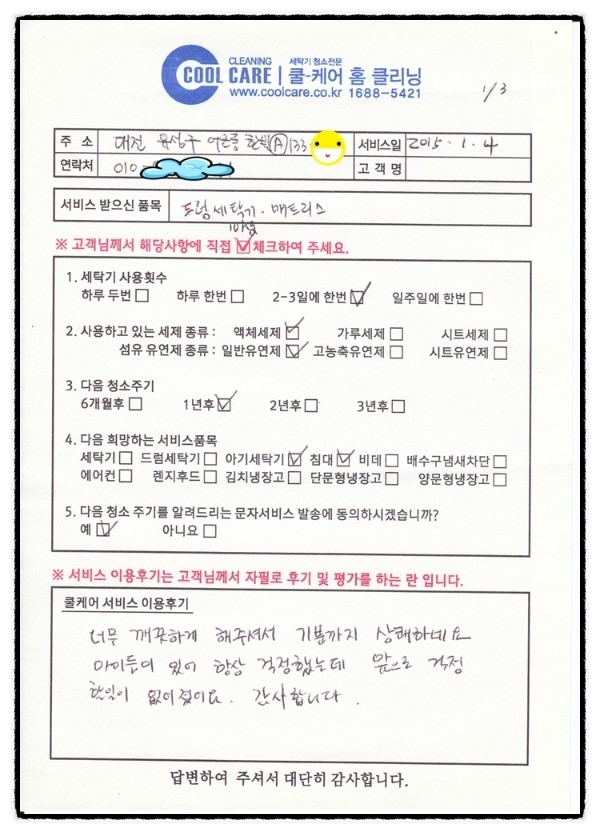 CLEANING 세탁기 청소전문
COOL CARE | 쿨-케어 홈 클리닝
www.coolcare.co.kr 1688-5421
1/3
주 소 대전 유성구 어은동 한빛Ⓐ 133 서비스일 2015. 1. 4
연락처 010 고 객 명
서비스 받으신 품목 드럼세탁기. 매트리스
※ 고객님께서 해당사항에 직접 ☑ 체크하여 주세요.
1. 세탁기 사용횟수
하루 두번 □ 하루 한번 □ 2-3일에 한번 ☑ 일주일에 한번 □
2. 사용하고 있는 세제 종류 : 액체세제 ☑ 가루세제 □ 시트세제 □
섬유 유연제 종류 : 일반유연제 ☑ 고농축유연제 □ 시트유연제 □
3. 다음 청소주기
6개월후 □ 1년후 ☑ 2년후 □ 3년후 □
4. 다음 희망하는 서비스품목
세탁기 □ 드럼세탁기 □ 아기세탁기 ☑ 침대 ☑ 비데 □ 배수구냄새차단 □
에어컨 □ 렌지후드 □ 김치냉장고 □ 단문형냉장고 □ 양문형냉장고 □
5. 다음 청소 주기를 알려드리는 문자서비스 발송에 동의하시겠습니까?
예 ☑ 아니요 □
※ 서비스 이용후기는 고객님께서 자필로 후기 및 평가를 하는 란 입니다.
쿨케어 서비스 이용후기
너무 깨끗하게 해주셔서 기분까지 상쾌하네요
아이들이 있어 항상 걱정했는데 앞으로 걱정
할일이 없어졌어요. 감사합니다.
답변하여 주셔서 대단히 감사합니다.